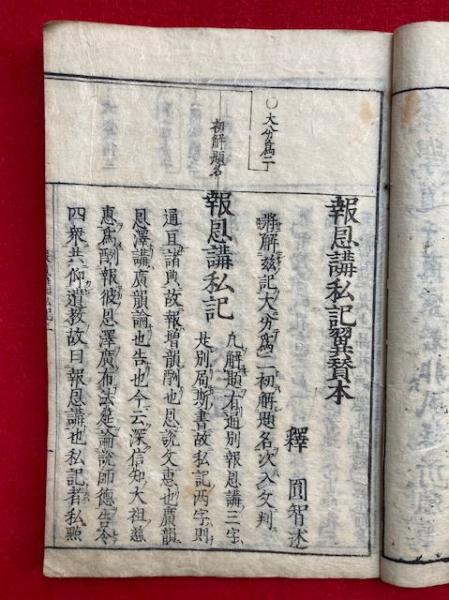 報恩講私記翼賛本
釋圓智述
將解茲記大分爲二初解題名次入文判
報恩講私記
凡解題有通別報恩講三字
此別局斯書故私記两字則
通亘諸典故報増韻酬也恩説文惠也廣韻
恩澤講廣韻論也告也今云深信知大祖慈
惠爲酬報彼恩澤廣布法莚論説師徳告令
四衆共仰遺教故曰報恩講也私記者私㸃
○大分爲二
初解題名